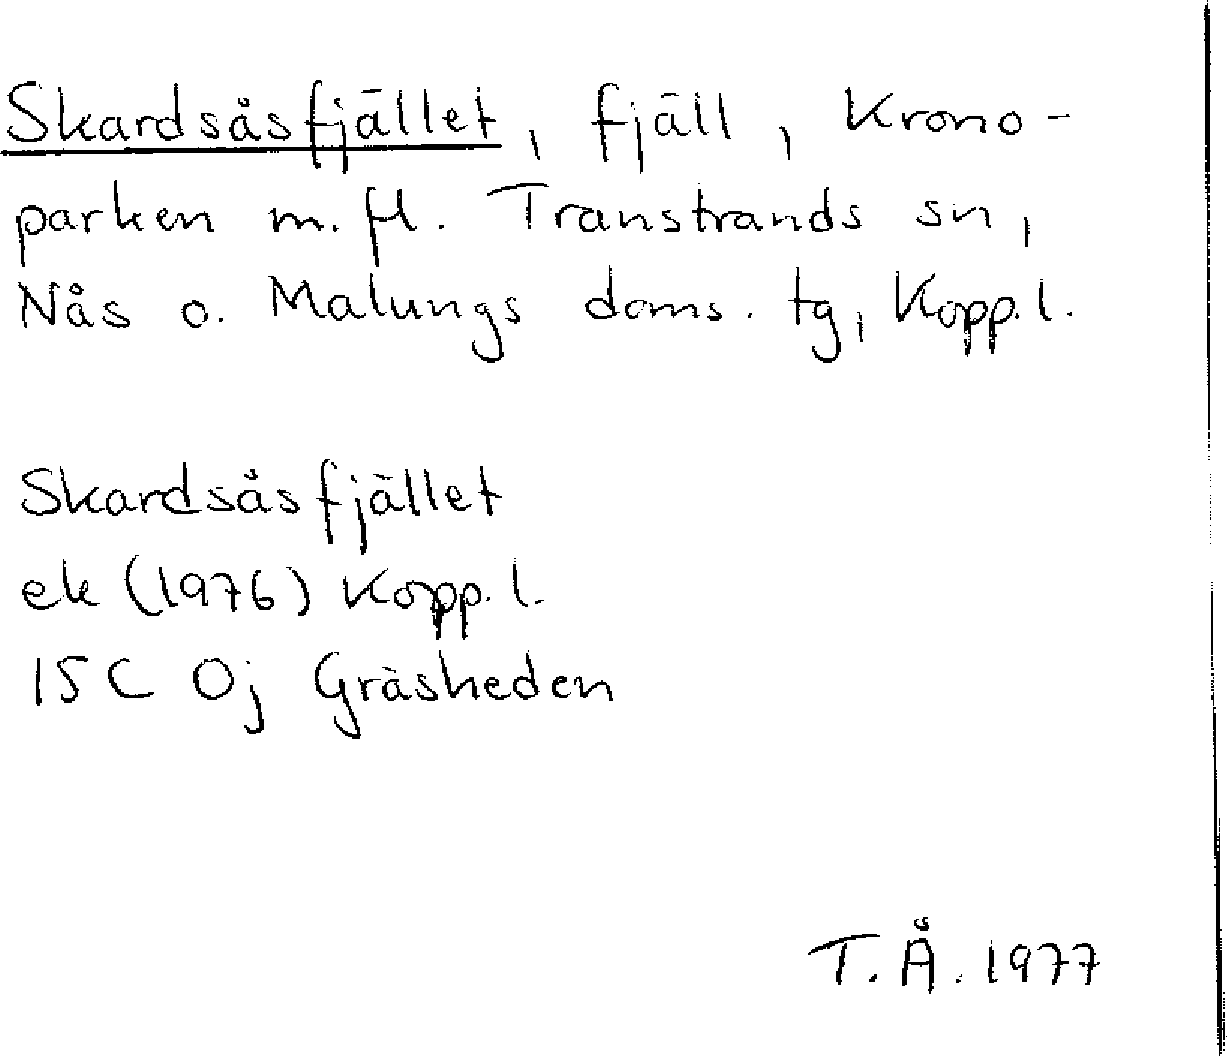 Skardsåsfjället, fjäll, Krono-
parken m.fl. Transtrands sn,
Nås o. Malungs doms. tg, Kopp.l.
Skardsåsfjället
ek (1976) Kopp.l.
15C 0j Gräsheden
T.Å. 1977